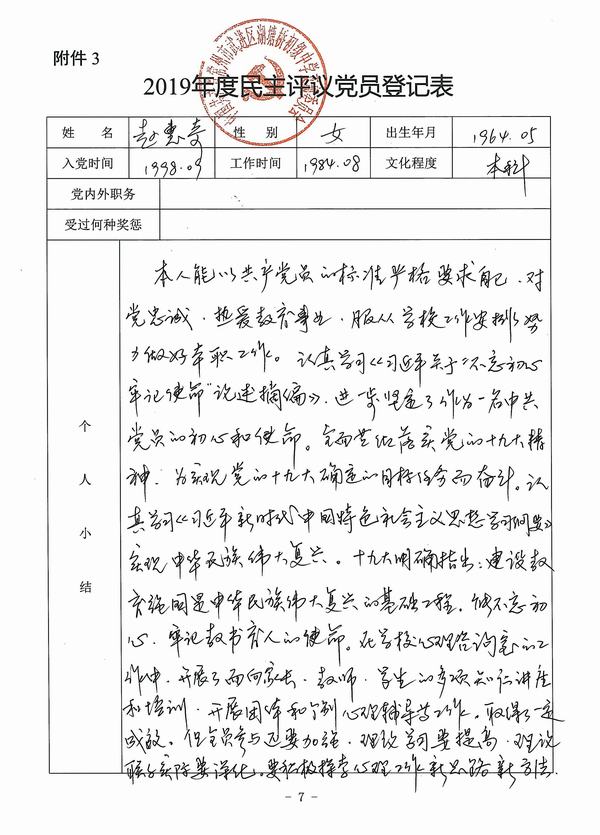 附件 3
2019年度民主评议党员登记表
姓 名 赵惠 性 别 女 出生年月 1964.05
入党时间 1998.09 工作时间 1984.08 文化程度 本科
党内外职务
受过何种奖惩
个人小结
本人能以共产党员的标准严格要求自己、对
党忠诚、热爱教育事业、服从学校工作安排、努
力做好本职工作。认真学习《习近平关于“不忘初心
牢记使命”论述摘编》,进一步坚定了作为一名中共
党员的初心和使命。全面贯彻落实党的十九大精
神、为实现党的十九大确定的目标任务而奋斗。认
真学习《习近平新时代中国特色社会主义思想学习纲要》
实现中华民族伟大复兴。十九大明确指出:建设教
育强国是中华民族伟大复兴的基础工程。 不忘初
心、牢记教书育人的使命。在学校心理咨询室的工
作中、开展了面向家长、教师、学生的多项知识讲座
和培训、开展团体和个别心理辅导等工作。取得了一定
成效。但全员参与还要加强、理论学习要提高、理论
联系实际要深化。要积极探索心理工作新思路新方法.
- 7 -